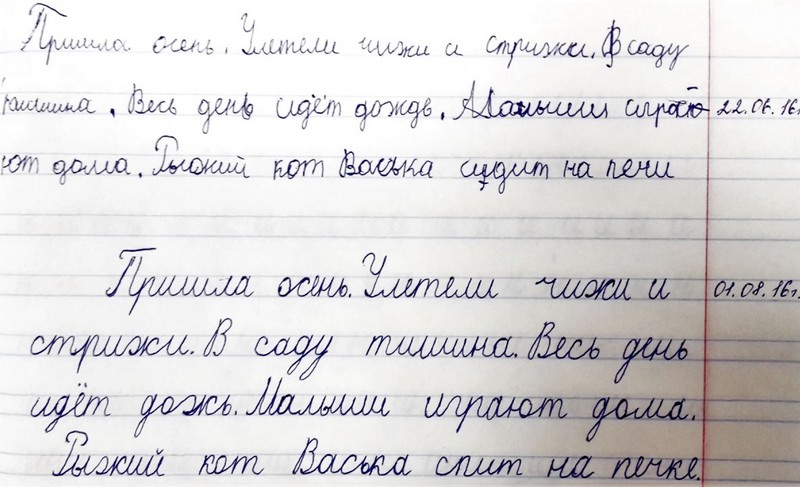 Пришла осень. Улетели чижи и стрижи. В саду
тишина. Весь день идёт дождь. Малыши игра 22.06.16г.
ют дома. Рыжий кот Васька сидит на печи
Пришла осень. Улетели чижи и 01.08.16г.
стрижи. В саду тишина. Весь день
идёт дожь. Малыши играют дома.
Рыжий кот Васька спит на печке.